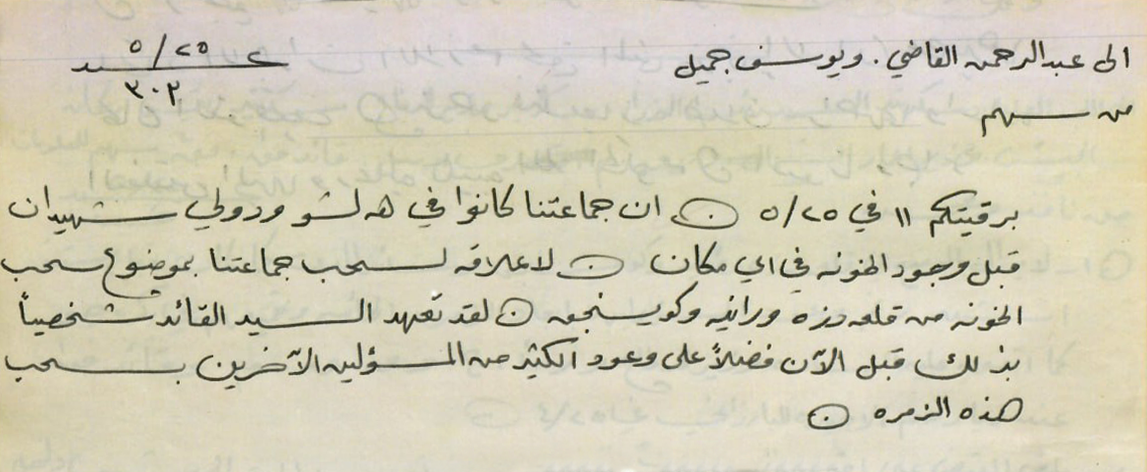 الى عبدالرحمن القاضي. ويوسف جميل
عدد ٢٥/٥
٣٠٢
من سهم
برقيتكم ١١ في ٢٥/٥ ن ان جماعتنا كانوا في هه لشو ودولي شهيدان
قبل وجود الخونه في اي مكان ن لاعلاقه لسحب جماعتنا بموضوع سحب
الخونه من قلعه دزه ورانيه وكويسنجق ن لقد تعهد السيد القائد شخصياً
بذلك قبل الآن فضلاً على وعود الكثير من المسؤلين الآخرين بسحب
هذه الزمره ن